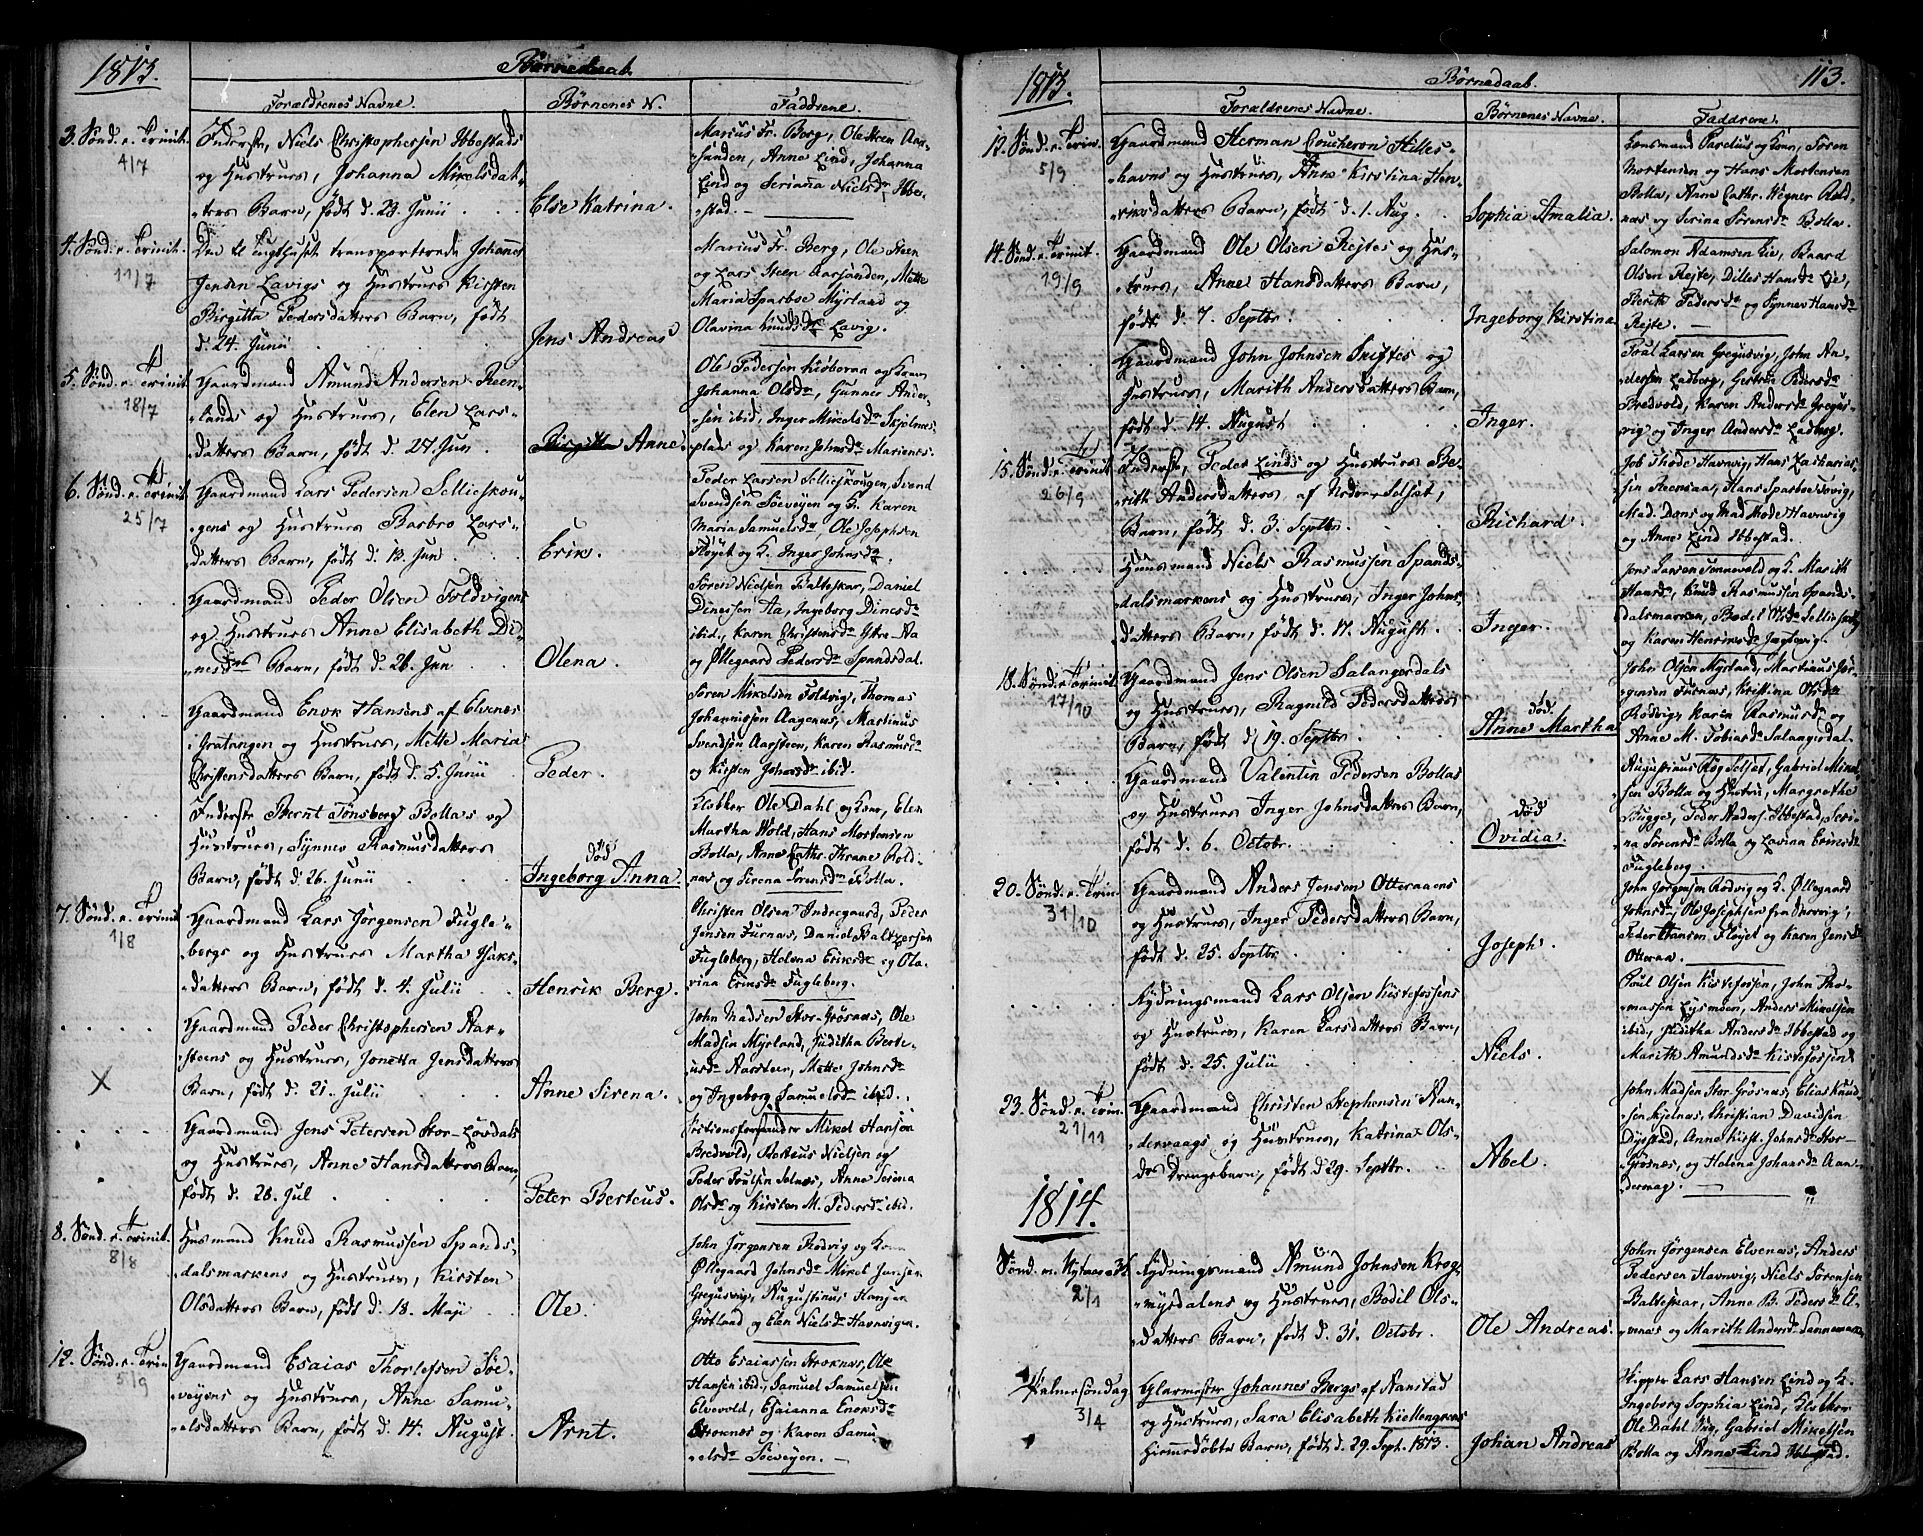 1813.
Børnedaab.
Forældrenes Navne.
Børnenes N.
Faddrene.
3. Sønd. e. Trinit.
4/7
Inderste, Niels Christophersen Ibbestads
og Hustrues, Johanna Mikelsdat-
ters Barn, født d. 23. Junii
Else Katrina.
Marius Fr. Berg, Ole Steen Aar-
sanden, Anne Lind, Johanna
Lind og Seriana Nielsdr Ibbe-
stad.
4. Sønd. e. Trinit.
11/7
Den til Tugthuset transporterede Johannes
Jensen Lavigs og Hustrues Kirsten
Birgitta Pedersdatters Barn, født
d. 24. Junii
Jens Andreas
Marius Fr. Berg, Ole Steen
og Lars Steen Aarsanden, Mette
Maria Sparboe Myrland og
Olavina Knudsdr Lavig.
5. Sønd. e. Trinit.
18/7
Gaardmand Amund Andersen Reen-
lands og Hustrues, Elen Lars-
datters Barn, født d. 27. Jun
Birgitta Anne.
Ole Pedersen Kioboraa og Kone
Johanna Olsdr, Gunner Ander-
sen ibid, Inger Mikelsdr Skjelnes-
plads og Karen Johnsdr Marienes.
6. Sønd. e. Trinit.
25/7
Gaardmand Lars Pedersen Sellieskou-
gens og Hustrues Barbro Lars-
datters Barn, født d. 13. Jun
Erik.
Peder Larsen Sellieskougen, Svend
Svendsen Soeveyen og K. Karen
Maria Samuelsdr, Ole Josephsen
Fløyet og K. Inger Johnsdr.
Gaardmand Peder Olsen Foldvigens
og Hustrues Anne Elisabeth Di-
nesdrs Barn, født d. 26. Jun
Olena.
Søren Nielsen Balteskar, Daniel
Dinessen Aa, Ingeborg Dinesdr
ibid, Karen Christensdr Ytre-Aa
og Øllegaard Pedersdr Spandsdal.
Gaardmand Enok Hansens af Elvenes
Gratangen og Hustrues, Mette Maria
Christensdatters Barn, født d. 5. Junii
Peder.
Søren Mikelsen Foldvig, Thomas
Johannissen Aagenæs, Martinus
Svendsen Aarsteen, Karen Rasmusdr
og Kirsten Johansdr ibid.
Inderste Bernt Tønsberg Bollas og
Hustrues, Synnev Rasmusdatters
Barn, født d. 26. Junii
død
Ingeborg Anna.
Klokker Ole Dahl og Kone, Elen
Martha Wold, Hans Mortensen
Bolla, Anne Cathr. Thrane Rold-
næs og Sirena Sørensdr Bolla.
7. Sønd. e. Trinit
1/8
Gaardmand Lars Jørgensen Fugle-
bergs og Hustrues Martha Isaks-
datters Barn, født d. 4. Julii
Henrik Berg.
Christen Olsen Indregaard, Peder
Jensen Furnæs, Daniel Baltzersen
Fugleberg, Helena Eriksdr og Ola-
vina Eriksdr Fugleberg.
Gaardmand Peder Christophersen Aar-
steens og Hustrues, Jonetta Jensdatters
Barn, født d. 21. Julii
X
Anne Sirena.
John Madsen Stor-Grøsnæs, Ole
Madsen Myrland, Juditha Berte-
usdr Aarsteen, Mette Johnsdr
og Ingeborg Samuelsdr ibid.
Gaardmand Jens Petersen Stor-Løvdals
og Hustrues, Anne Hansdatters Barn,
født d. 28. Jul
Peter Berteus.
Mikel Hansen
Bredvold, Berteus Nielsen og
Peder Poulsen Selnæs, Anne Serina
Olsdr og Kirsten M. Pedersdr ibid.
8. Sønd. e. Trinit.
8/8
Husmand Knud Rasmussen Spands-
dalsmarkens og Hustrues, Kirsten
Olsdatters Barn, født d. 18. Maji
Ole.
John Jørgensen Rødvig og Kone
Øllegaard Johnsdr Mikel Jensen
Gregusvig, Augustinus Hansen
Grøtland og Elen Nielsdr Havnvigen.
12. Sønd. e. Trin
5/9
Gaardmand Esaias Thorlefsen Søe-
veyens og Hustrues, Anne Samu-
elsdatters Barn, født d. 14. August.
Arnt.
Otto Esaiassen Stroknæs, Ole
Hansen ibid, Samuel Samuelsen
Elvevold, Esaianna Enoksdr
Stroknes og Karen Samu-
elsdr Soeveyen.
1813.
Børnedaab.
113.
Forældrenes Navne.
Børnenes Navne.
Faddrene.
12. Sønd. e. Trin.
5/9
Gaardmand Herman Coucheron Hilles-
havns og Hustrues, Anne Kirstina Hen-
riksdatters Barn, født d. 1. Aug.
Sophia Amalia.
Lensmand Parelius og Kone, Søren
Mortensen og Hans Mortensen
Bolla, Anne Cathr. Wegner Rold-
næs og Serina Sørensdr Bolla.
14. Sønd. e. Trinit.
19/9
Gaardmand Ole Olsen Rejtes og Hus-
trues, Anne Hansdatters Barn,
født d. 7. Septbr.
Ingeborg Kirstina
Salomon Adamsen Lie, Baard
Olsen Rejte, Dilles Hansdr Lie,
Berith Pedersdr og Synnev Hansdr
Rejte.
Gaardmand John Johnsen Suiftes og
Hustrues, Marith Andersdatters Barn,
født d. 14. August
Inger.
Poul Larsen Gregusvig, John An-
dersen Ladberg, Gertrue Pedersdr
Bredvold, Karen Andersdr Gregus-
vig og Inger Andersdr Ladberg.
15. Sønd. e. Trinit
26/9
Inderste, Peder Linds og Hustrues Be-
rith Andersdatters af Nedre-Selset,
Barn, født d. 3. Septbr.
Richard.
Job Thode Havnvig, Hans Zacharias-
sen Reensaa, Hans Sparboe Tovig,
Mad. Dons og Mad Thode Havnvig
og Anne Lind Ibbestad.
Huusmand Niels Rasmussen Spands-
dalsmarkens og Hustrues, Inger Johns-
datters Barn, født d. 17. August.
Inger.
Jens Larsen Sonnevold og K. Marith
Hansdr, Knud Rasmussen Spands-
dalsmarken, Bodel Olsdr
og Karen Henriksdr Jægtevig.
18. Sønd. e. Trinit.
17/10
Gaardmand Jens Olsen Salangsdals
og Hustrues, Ragnild Pedersdatters
Barn, født d. 19. Septbr.
død
Anne Martha
John Olsen Myrland, Martinus Jør-
gensen Furnæs, Kristina Olsdr
Rødvig, Karen Rasmusdr og
Anne M. Tobiasdr Salangsdal.
Gaardmand Valentin Pedersen Bollas
og Hustrues Inger Johnsdatters Barn,
født d. 6. Octobr.
død
Ovidia.
Augustinus Røg Selset, Gabriel Mikel-
sen Bolla og Hustru, Margrethe
Bugge, Peder Anders. Ibbestad, Seri-
na Sørensdr Bolla og Lavina Eriksdr
Fugleberg.
20. Sønd. e. Trin.
31/10
Gaardmand Anders Jensen Otteraaens
og Hustrues, Inger Pedersdatters Barn,
født d. 25. Septbr.
Joseph.
John Jørgensen Rødvig og K. Øllegaard
Johnsdr, Ole Josephsen fra Skorvig,
Peder Hansen Fløyet og Karen Jensdr
Otteraa.
Rydningsmand Lars Olsen Kistefossens
og Hustrues, Karen Larsdatters Barn,
født d. 25. Julii
Niels.
Poul Olsen Kistefossen, John Tho-
massen Lysmoen, Anders Mikelsen
ibid, Juditha Andersdr Ibbestad og
Marith Amundsdr Kistefossen
23. Sønd. e. Trin.
21/11
Gaardmand Christen Stephensen Aan-
dervaags og Hustrues, Katrina Ols-
drs Drengebarn, født d. 29. Septbr.
Abel.
John Madsen Stor-Grøsnæs, Elias Knud-
sen Kjelnæs, Christian Davidsen
Dyrstad, Anne Kirst. Johnsdr Stor-
Grøsnæs, og Helena Johansdr Aan-
dervag.
1814.
Sønd. m. Nytaar
2/1
Rydningsmand Amund Johnsen Krog-
mysdalens og Hustrues, Bodil Ols-
datters Barn, født d. 31. Octobr.
Ole Andreas.
John Jørgensen Elvenæs, Anders
Pedersen Havnvig, Niels Sørensen
Balteskar, Anne B. Pedersdr El-
venæs og Marith Andersdr
Palmesøndag
3/4
Glarmester Johannes Bergs af Aanstad
og Hustrues, Sara Elisabeth Kiellengreens
hiemedøbte Barn, født d. 29. Sept. 1813.
Johan Andreas
Skipper Lars Hansen Lind og K.
Ingeborg Sophia Lind, Klokker
Ole Dahl, Gabriel Mikelsen
Bolla og Anne Lind Ibbestad.